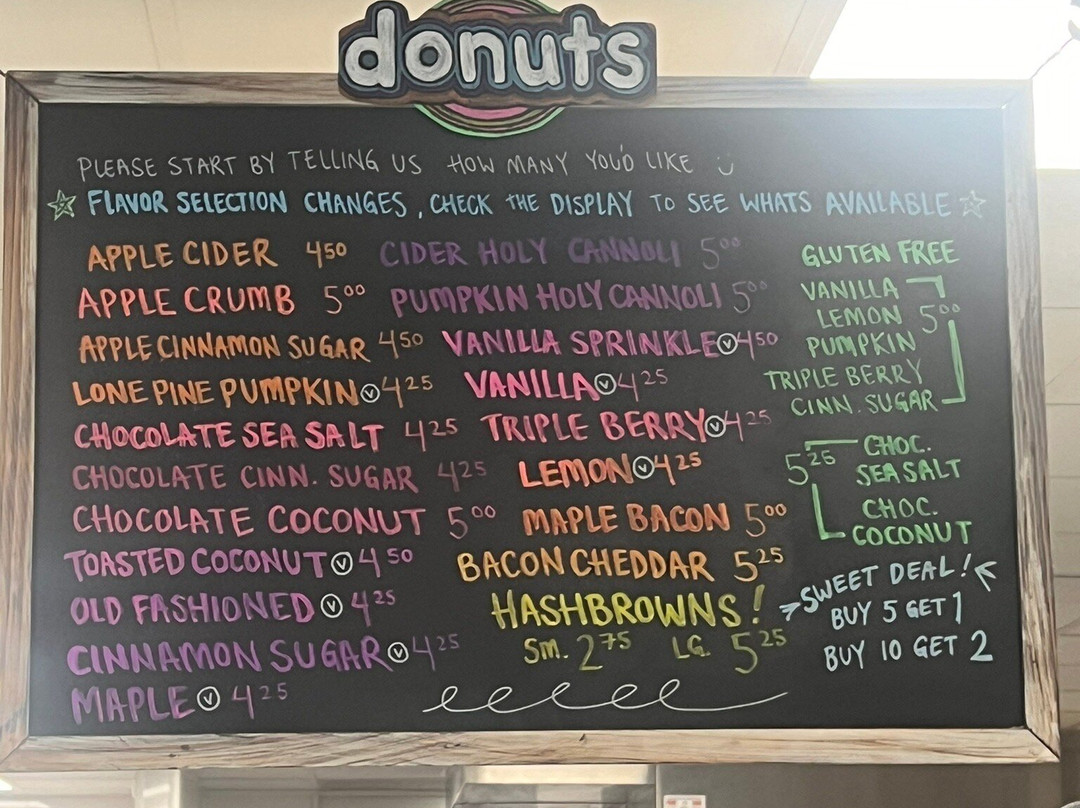 donuts
PLEASE START BY TELLING US HOW MANY YOU'D LIKE
FLAVOR SELECTION CHANGES, CHECK THE DISPLAY TO SEE WHATS AVAILABLE
APPLE CIDER 4 50
APPLE CRUMB 5 00
APPLE CINNAMON SUGAR 4 50
LONE PINE PUMPKIN Ⓥ 4 25
CHOCOLATE SEA SALT 4 25
CHOCOLATE CINN. SUGAR 4 25
CHOCOLATE COCONUT 5 00
TOASTED COCONUT Ⓥ 4 50
OLD FASHIONED Ⓥ 4 25
CINNAMON SUGAR Ⓥ 4 25
MAPLE Ⓥ 4 25
CIDER HOLY CANNOLI 5 00
PUMPKIN HOLY CANNOLI 5 00
VANILLA SPRINKLE Ⓥ 4 50
VANILLA Ⓥ 4 25
TRIPLE BERRY Ⓥ 4 25
LEMON Ⓥ 4 25
MAPLE BACON 5 00
BACON CHEDDAR 5 25
HASHBROWNS!
SM. 2 75 LG. 5 25
GLUTEN FREE
VANILLA
LEMON 5 00
PUMPKIN
TRIPLE BERRY
CINN. SUGAR
5 25 CHOC.
SEA SALT
CHOC.
COCONUT
SWEET DEAL!
BUY 5 GET 1
BUY 10 GET 2